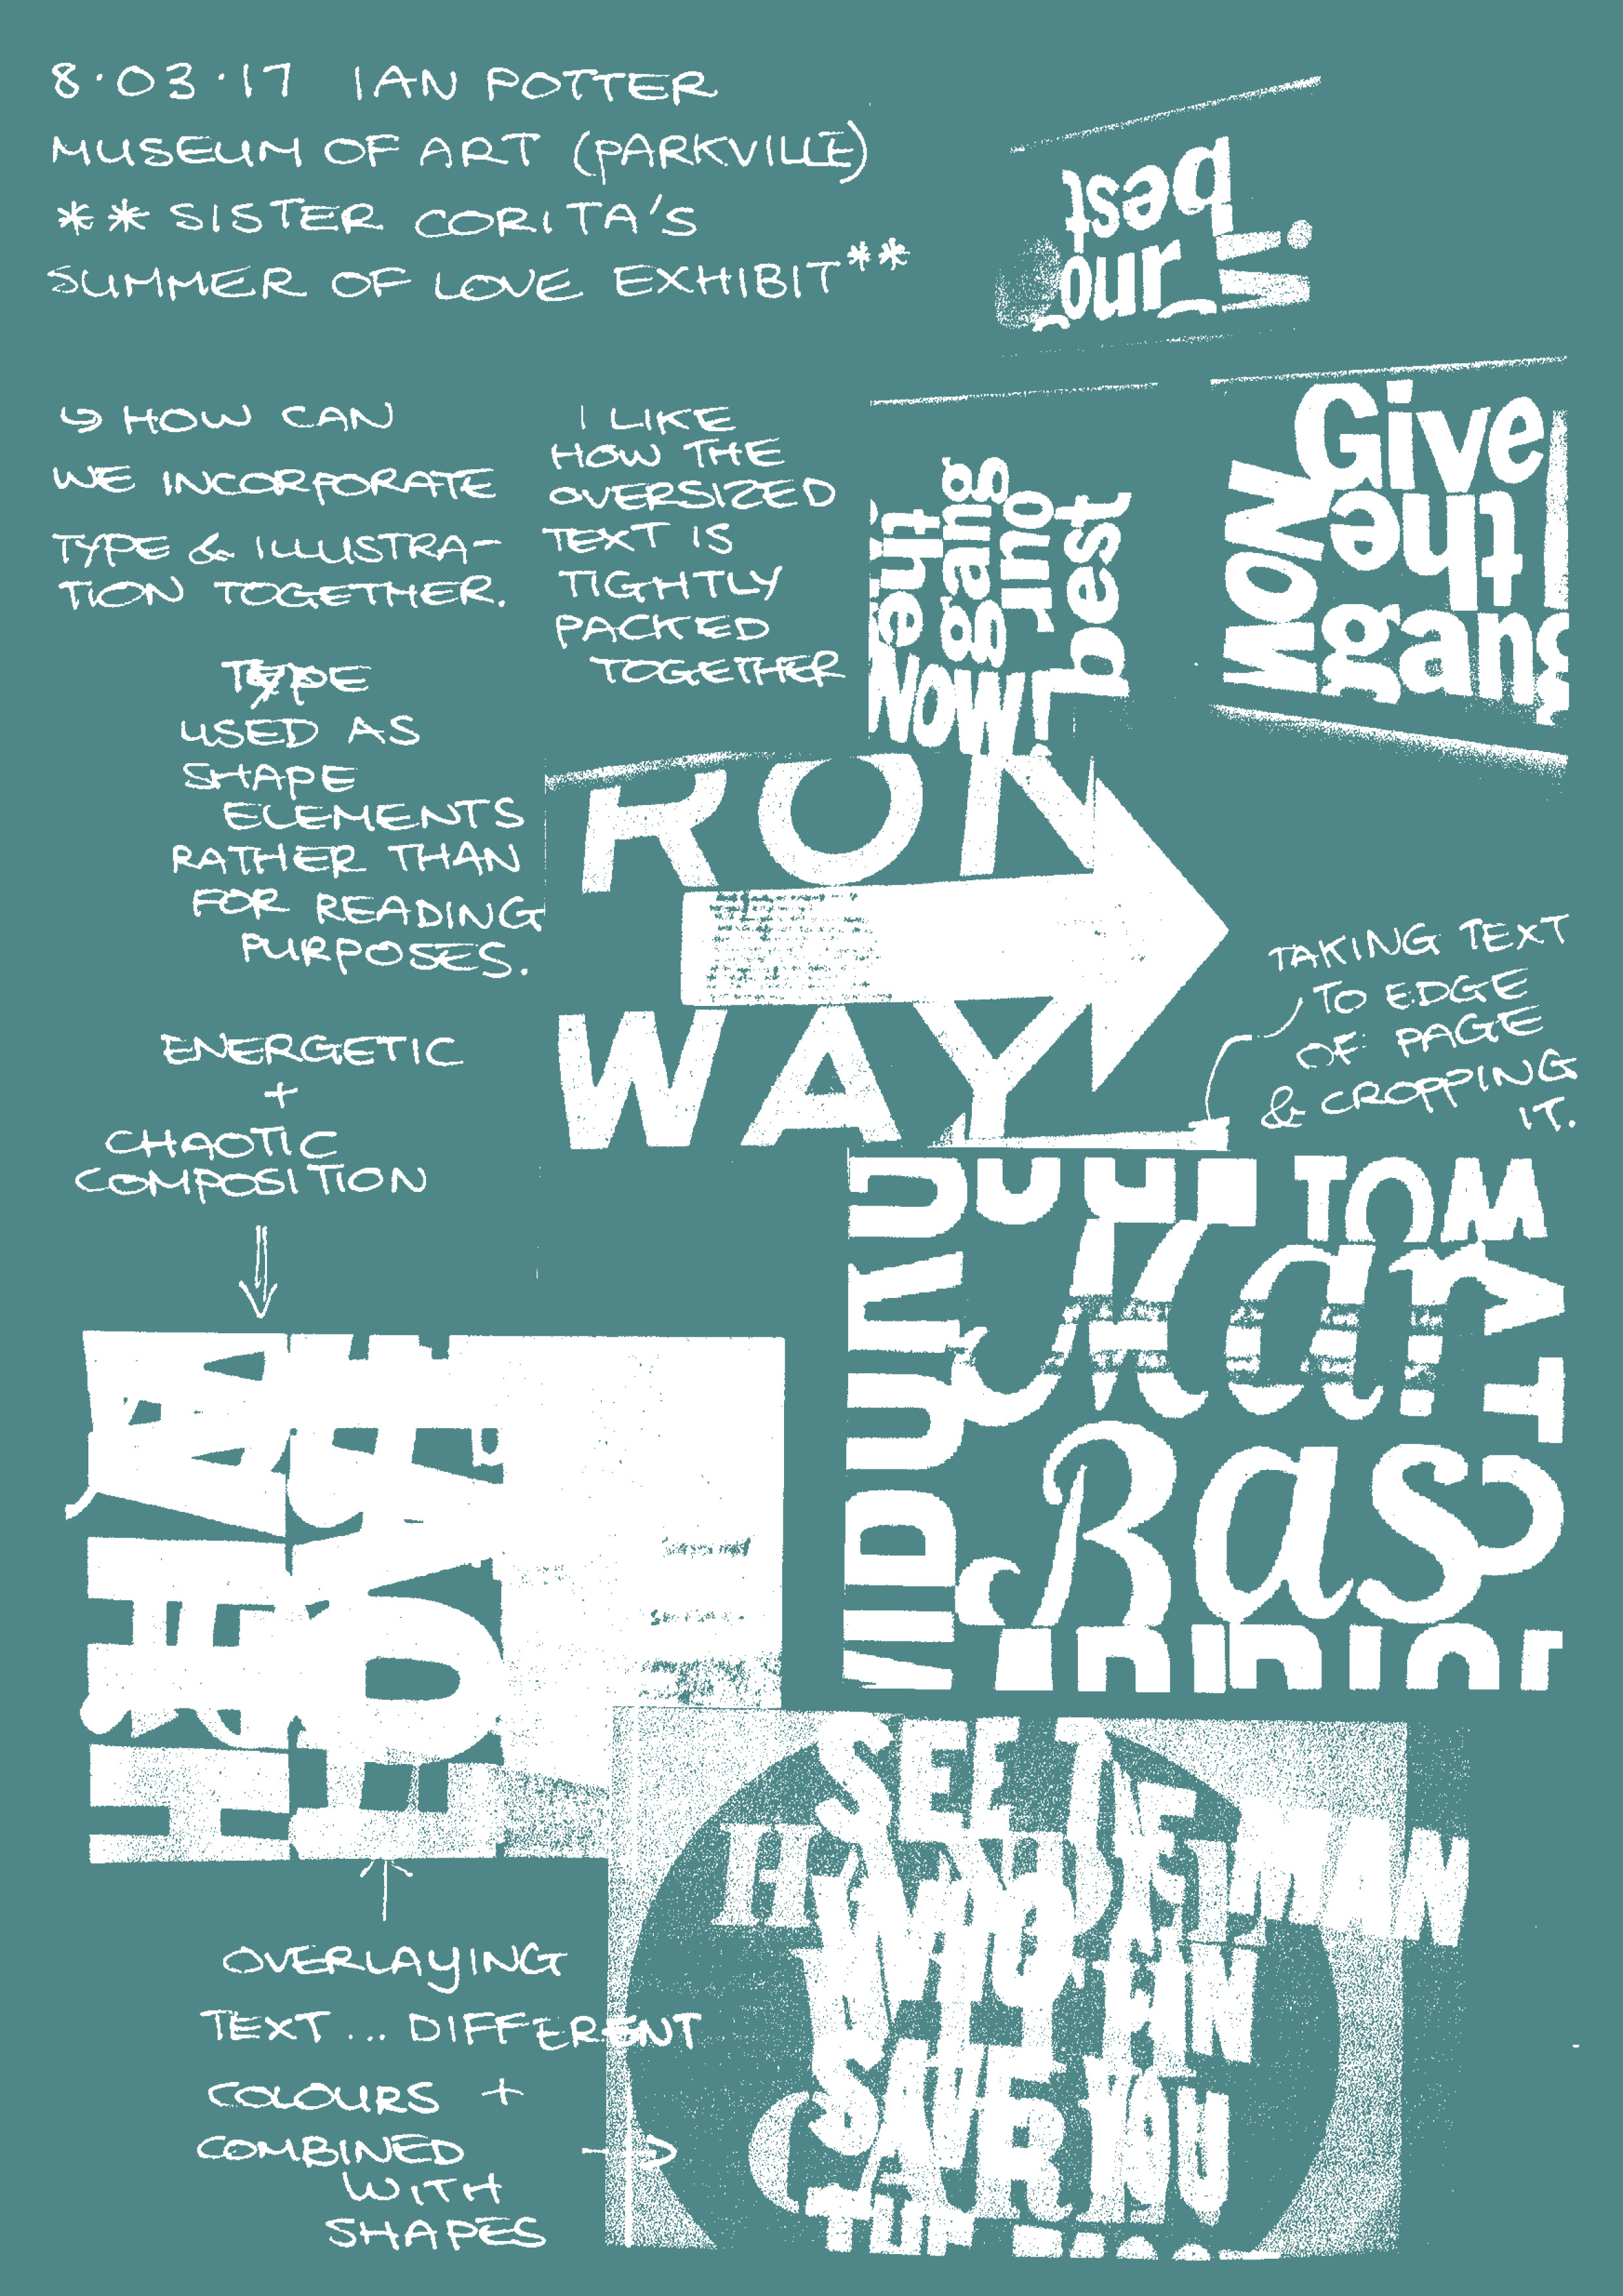 8·03·17 IAN POTTER
MUSEUM OF ART (PARKVILLE)
** SISTER CORITA'S
SUMMER OF LOVE EXHIBIT**
best
our
↪ HOW CAN
WE INCORPORATE
TYPE & ILLUSTRA-
TION TOGETHER.
I LIKE
HOW THE
OVERSIZED
TEXT IS
TIGHTLY
PACKED
TOGETHER
the
gang
our
best
NOW!
Give
the
gang
NOW
TYPE
USED AS
SHAPE
ELEMENTS
RATHER THAN
FOR READING
PURPOSES.
RON
WAY
TAKING TEXT
TO EDGE
OF PAGE
& CROPPING
IT.
ENERGETIC
+
CHAOTIC
COMPOSITION
TOM
Man
Bas
SEE THE MAN
WHO CAN
SAVE YOU
OVERLAYING
TEXT ... DIFFERENT
COLOURS +
COMBINED
WITH
SHAPES